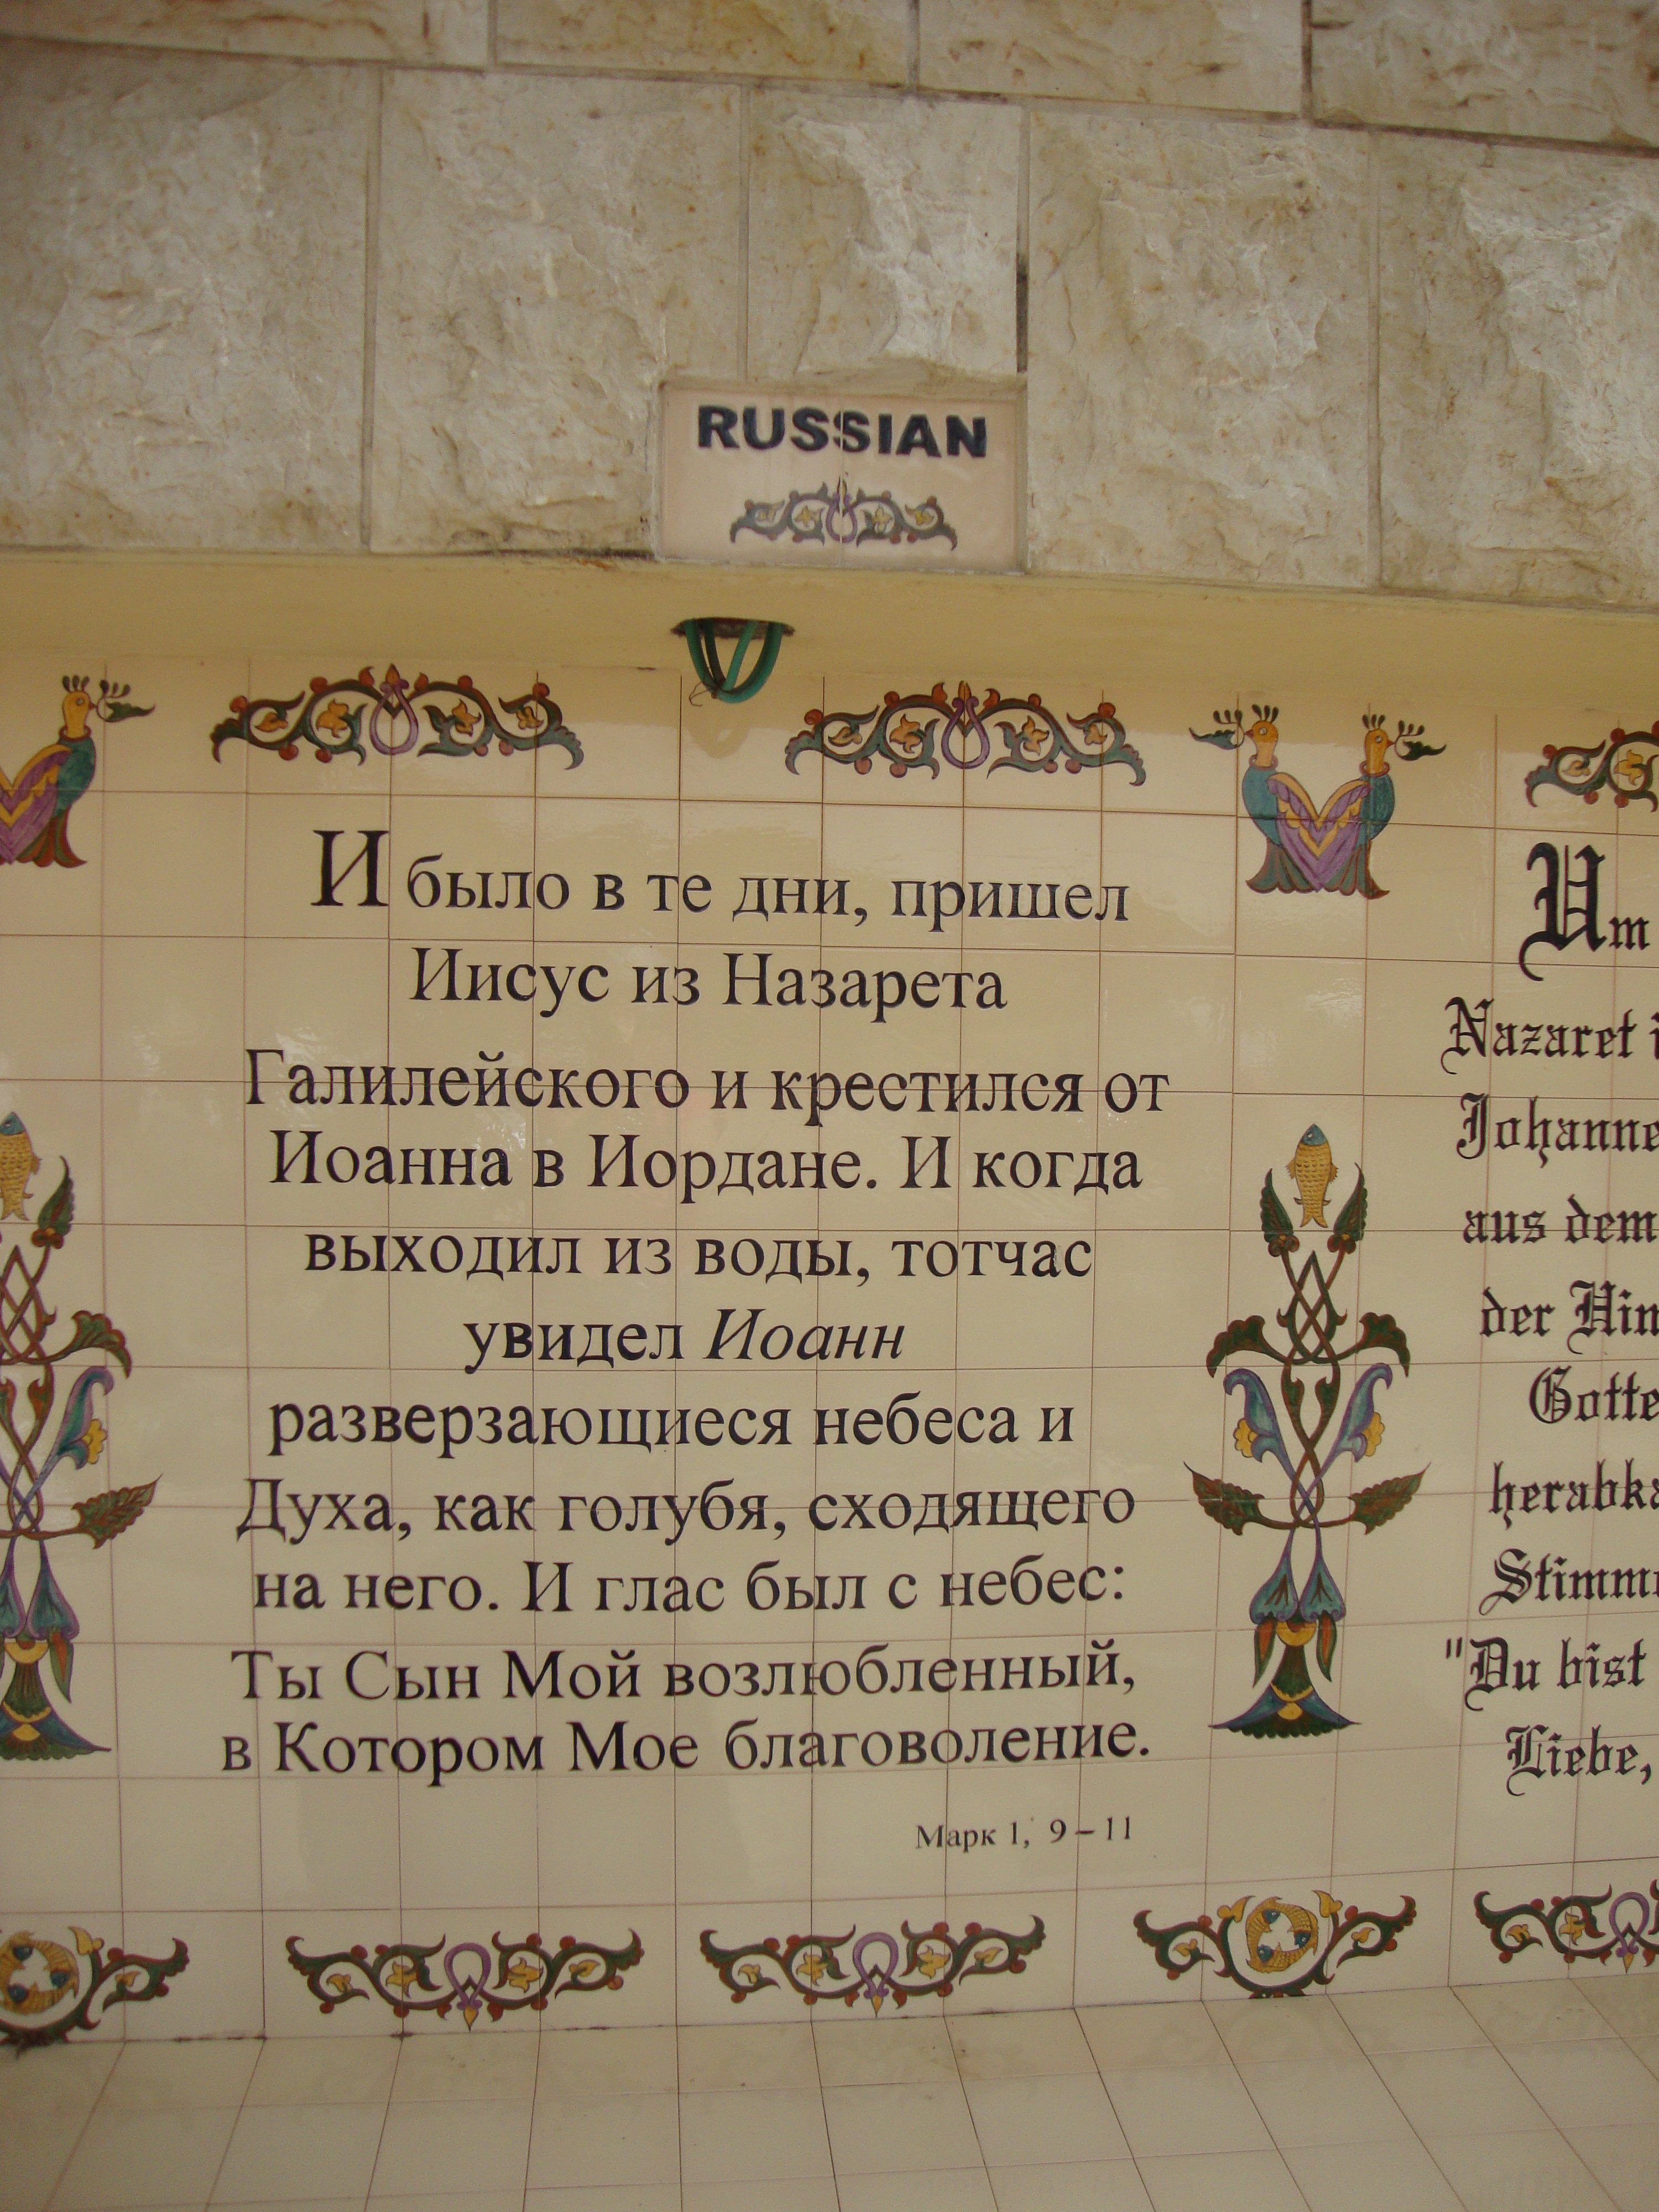 RUSSIAN
И было в те дни, пришел
Иисус из Назарета
Галилейского и крестился от
Иоанна в Иордане. И когда
выходил из воды, тотчас
увидел Иоанн
разверзающиеся небеса и
Духа, как голубя, сходящего
на него. И глас был с небес:
Ты Сын Мой возлюбленный,
в Котором Мое благоволение.
Марк 1, 9–11
Um
Nazaret
Johanne
aus dem
der Him
Gotte
herabka
Stimm
"Du bist
Liebe,